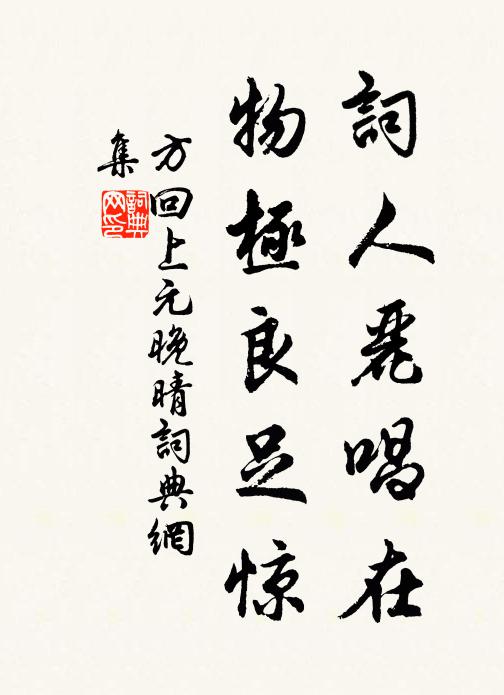 詞人麗唱在
物極良足惊
方回上元晚晴詞典網
集
詞典
网印